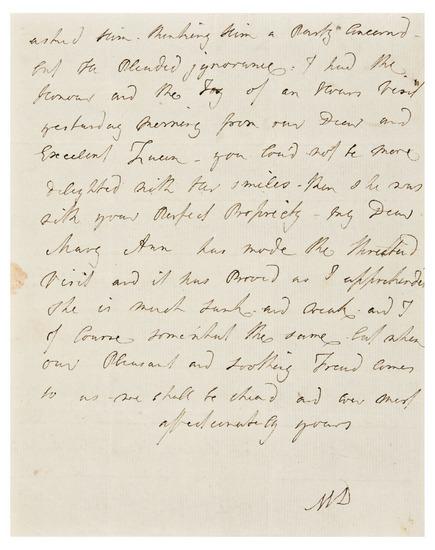 asked him. thinking him a Party Concerned.
but He Pleaded ignorance. I had the
Honour and the Joy of an Hours Visit
yesterday morning from our Dear and
Excelent Queen - you could not be more
delighted with her smiles. than she was
with your Perfect Propriety - my Dear
Mary Ann has made the Threatend
Visit and it has Proved as I apprehended
she is much sunk and weak. and I
of Course somewhat the same. but when
our Pleasant and soothing Freind comes
to us we shall be cheard and ever most
affectionately yours
MD